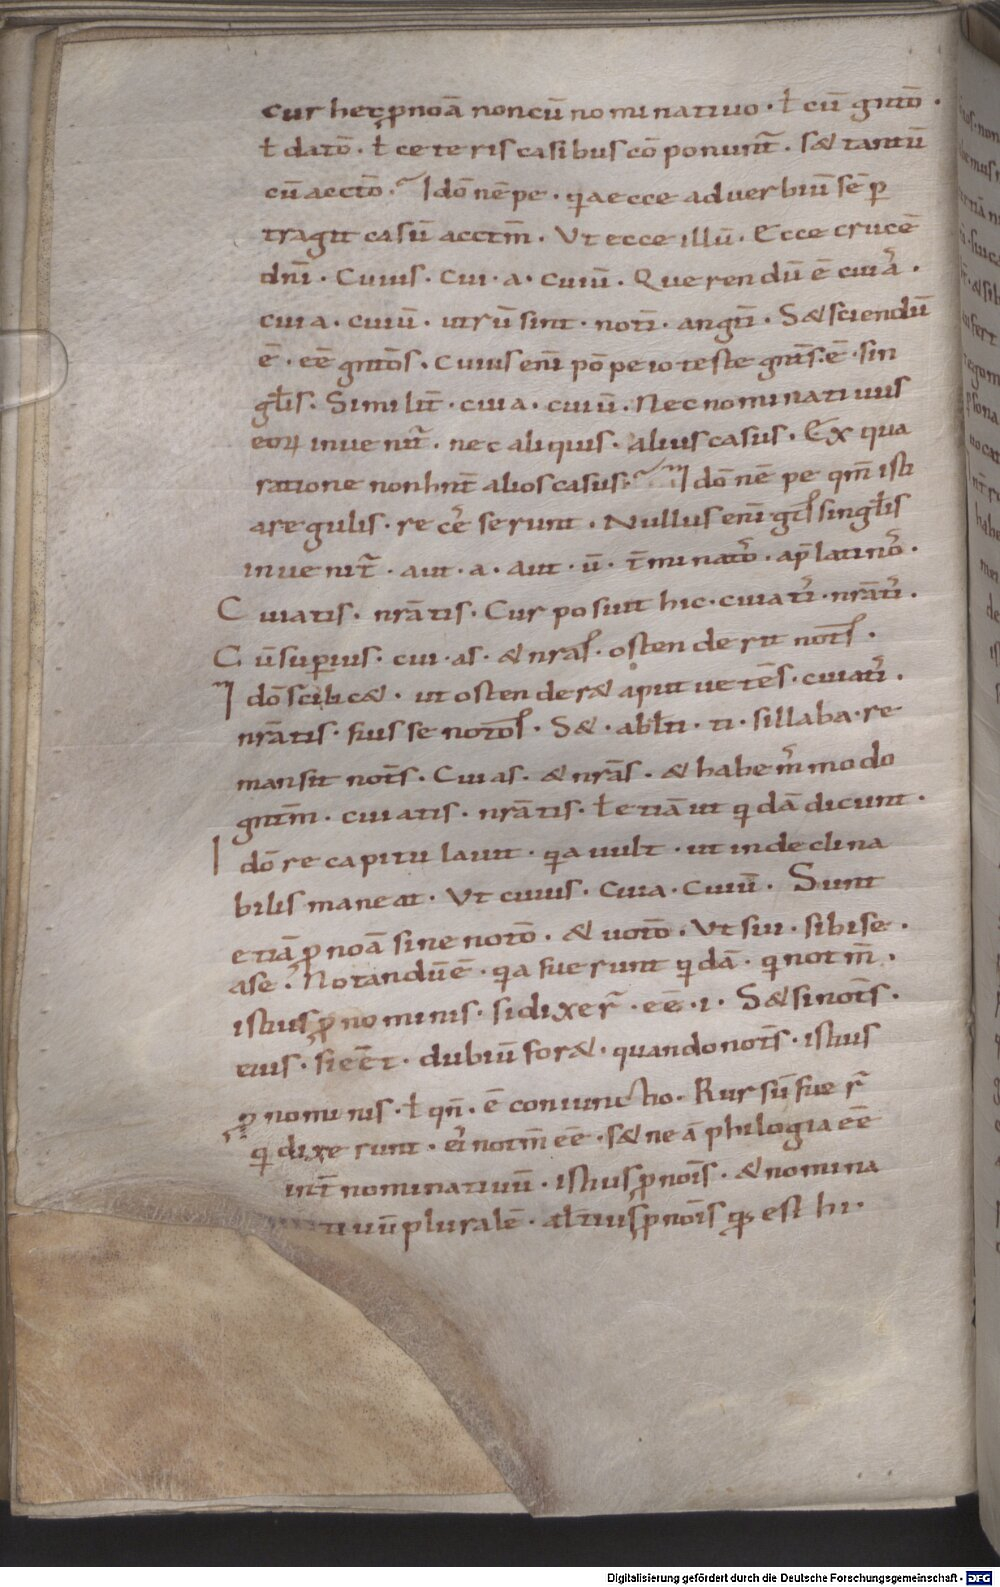 cur hec ꝓnoā non cū nominatiuo · ł cū gnitō ·
ł datō · ł ceteris casibus cōponunt̄ · s& tantū
cū acctō · Idō nēpe · q̇a ecce aduerbiū sēꝑ
tragit casū acctm̄ · Vt ecce illū · Ecce crucē
dn̄i · Cuius · cui · a · cuiū · Querendū ē cuiꝰ a ·
cuia · cuiū · utrū sint · notī · an gn̄ti · S& sciendū
ē · eē gnitōs · Cuius enī pōpeio teste gnt̄s · ē · sin
głis · Similit̄ · cuia · cuiū · Nec nominatiuus
eoꝝ inuenit̄ · nec aliquis · alius casus · Ex qua
ratione non hnt̄ alios casus · Idō nēpe qm̄ isti
a regulis · recēserunt · Nullus enī gt̄s singłis
inuenit̄ · aut · a · aut · ū · t̄minatꝰ · ap̄ latinoſ ·
Cuiatis · nrātis · Cur posuit hic · cuiati · nrāti ·
Cū suꝑius · cui · as · & nras · ostenderit nots̄ ·
Idō scilic& · ut ostender& aput uetēs · cuiati ·
nrātis · fuisse notōs · S& · abłti · ti · sillaba · re
mansit nots̄ · Cuias · & nrās · & habem̄ modo
gnitm̄ · cuiatis · nrātis · ł etiā ut q̇dā dicunt ·
Idō recapitulauit · q̇a uult · ut indeclina
bilis maneat · Vt cuius · cuia · cuiū · Sunt
etiā ꝓnoā sine notō · & uotō · Vt sui · sibi se ·
a se · Notandū ē · q̇a fuerunt q̇dā · q̇ notm̄ ·
istius ꝓnominis · si dixer̄ · eē · i · S& si nots̄ ·
eius · si eēt · dubiū for& · quando nots̄ · istius
ꝓnominis · ł qn̄ · ē coniunctio · Rursū fuer̄
q̇ dixerunt · ei notm̄ eē · s& ne āphilogia eē
int̄ nominatiuū · istius ꝓnoīs · & nomina
tiuū pluralē · alt̄ius ꝓnoīs qḋ est hi ·
Digitalisierung gefördert durch die Deutsche Forschungsgemeinschaft - DFG